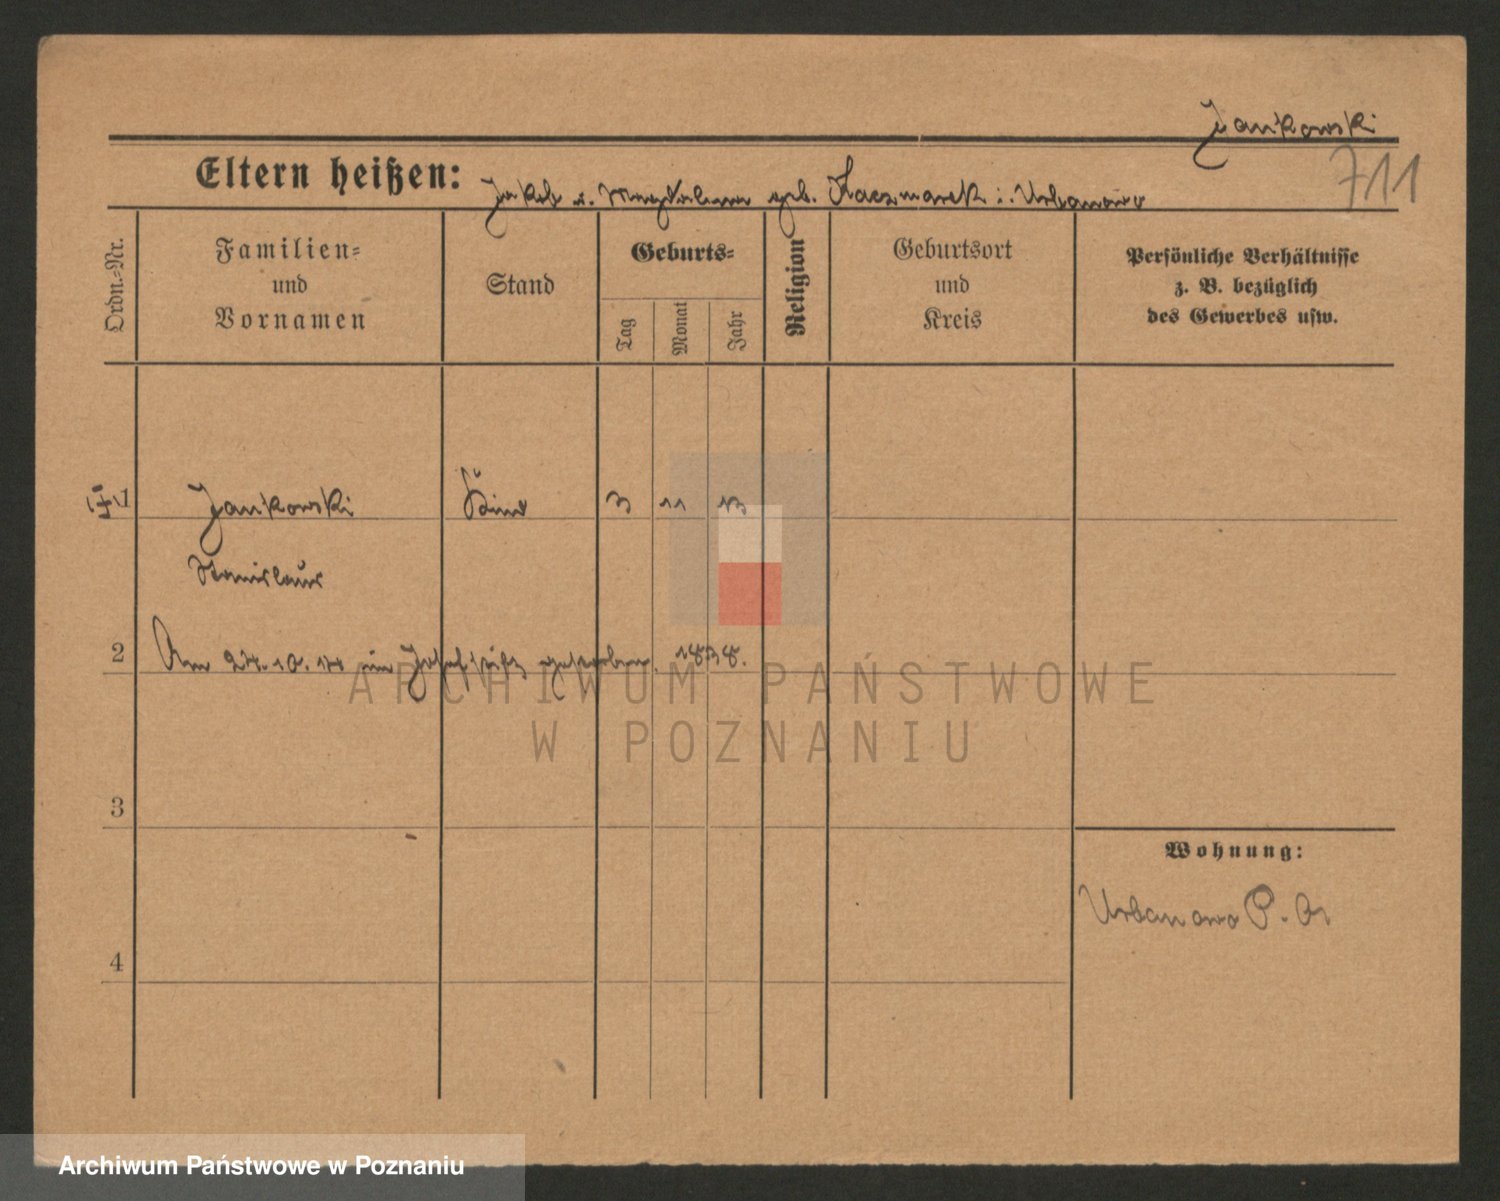 Jankowski
711
Eltern heißen: Jakob u. Magdalena geb. Kaczmarek i. Urbanowo
Ordn.-Nr.
Familien-
und
Vornamen
Stand
Geburts-
Tag
Monat
Jahr
Religion
Geburtsort
und
Kreis
Persönliche Verhältnisse
z. B. bezüglich
des Gewerbes usw.
1 Jankowski Kind 3 11 13
Stanislaus
2 Am 27.10.14 im Josefstift gestorben.
ARCHIWUM PAŃSTWOWE
W POZNANIU
3
Wohnung:
Urbanowo P.
4
Archiwum Państwowe w Poznaniu